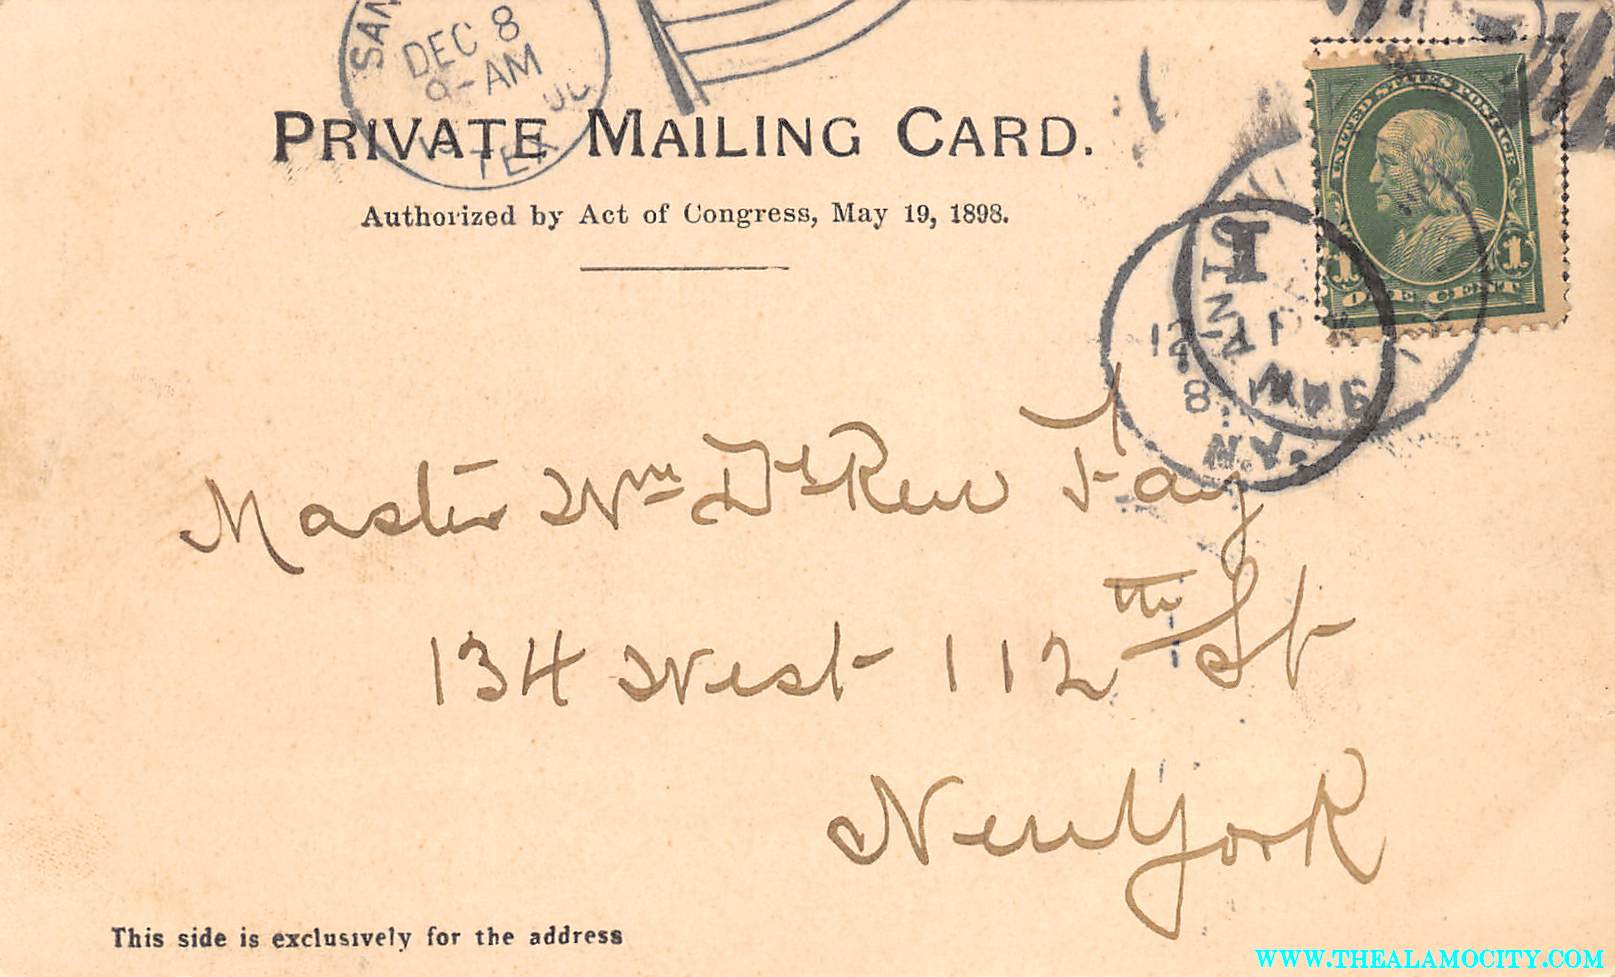 SAN
DEC 8
9-AM
00
TEX
PRIVATE MAILING CARD.
Authorized by Act of Congress, May 19, 1898.
UNITED STATES POSTAGE
1 1
ONE CENT
12
8
N.Y.
Master Wm De Rew Fay
134 West 112th St
New York
This side is exclusively for the address
WWW.THEALAMOCITY.COM